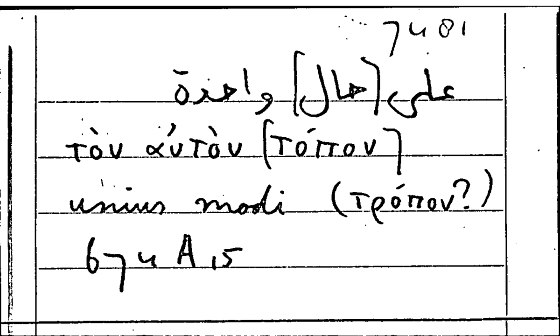 7481
على [حال] واحدة
τὸν αὐτὸν [τόπον]
unius modi (τρόπον?)
674 A 15